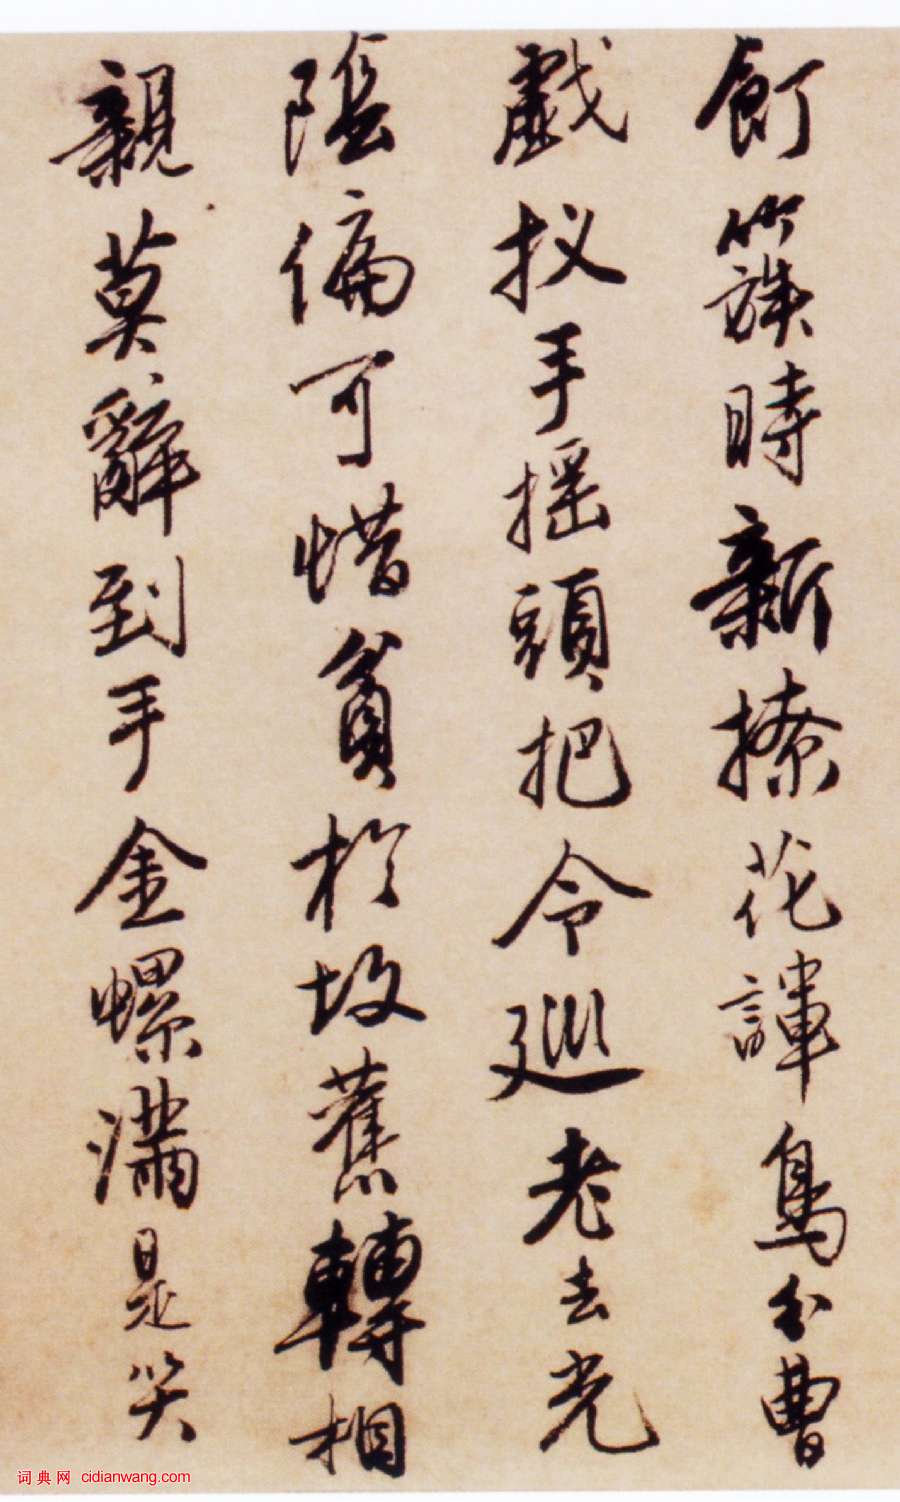 飣簇時新撩花諢鳥分曹
戲扠手摇頭把令巡老去光
陰偏可惜貧於故舊轉相
親莫辭到手金螺滿是笑
词典网 cidianwang.com